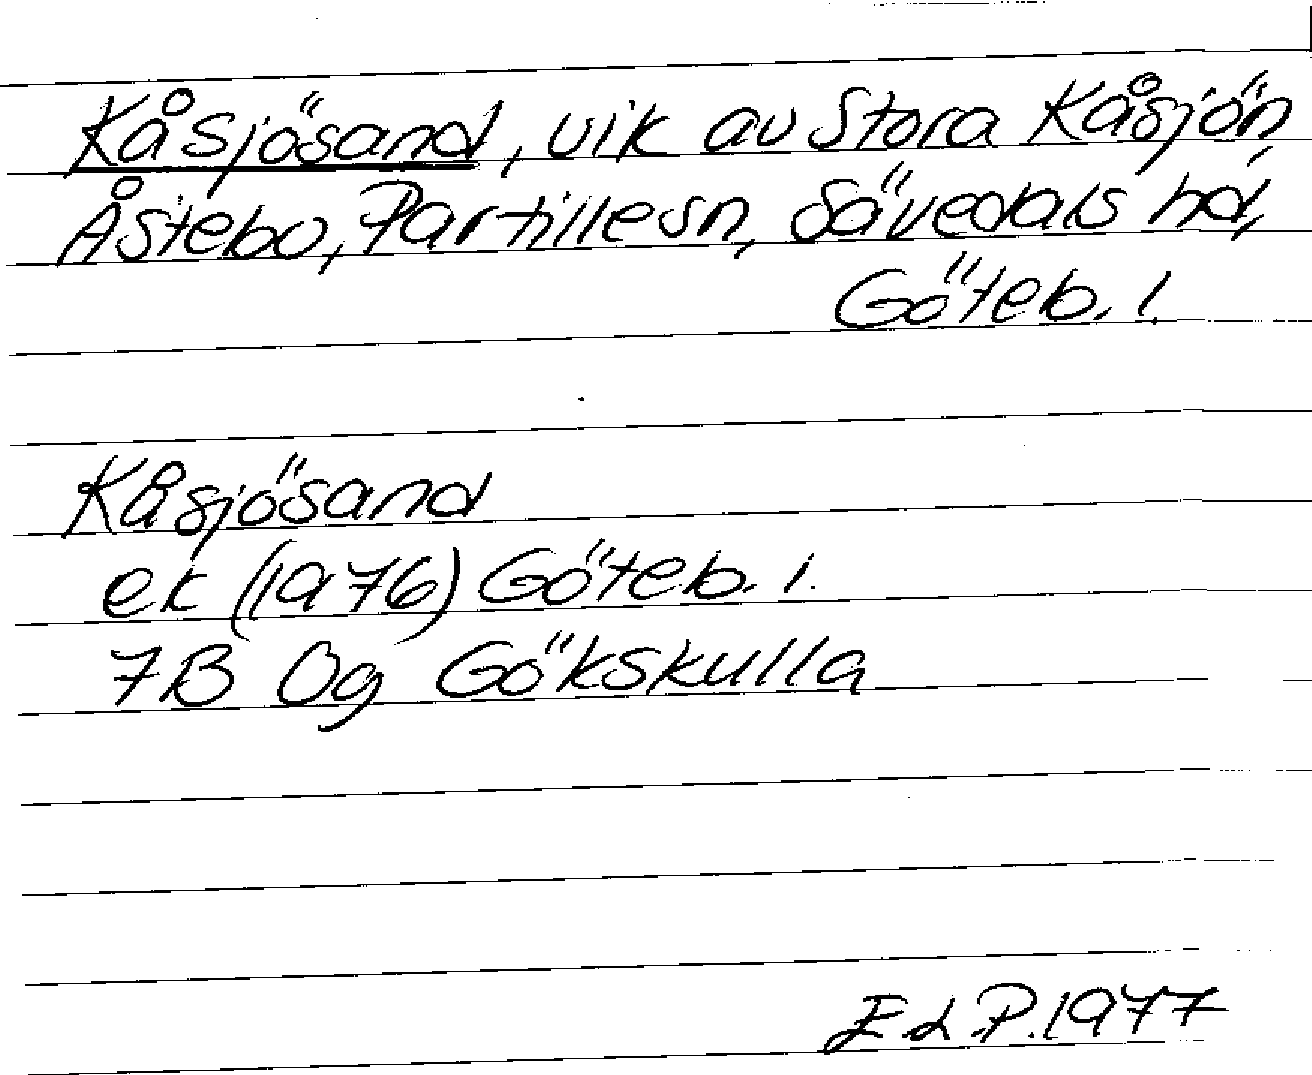 Kåsjösand, vik av Stora Kåsjön,
Åstebo, Partille sn, Sävedals hd,
Göteb. l.
Kåsjösand
ek (1976) Göteb. l.
7B 0g Gökskulla
E L P. 1977